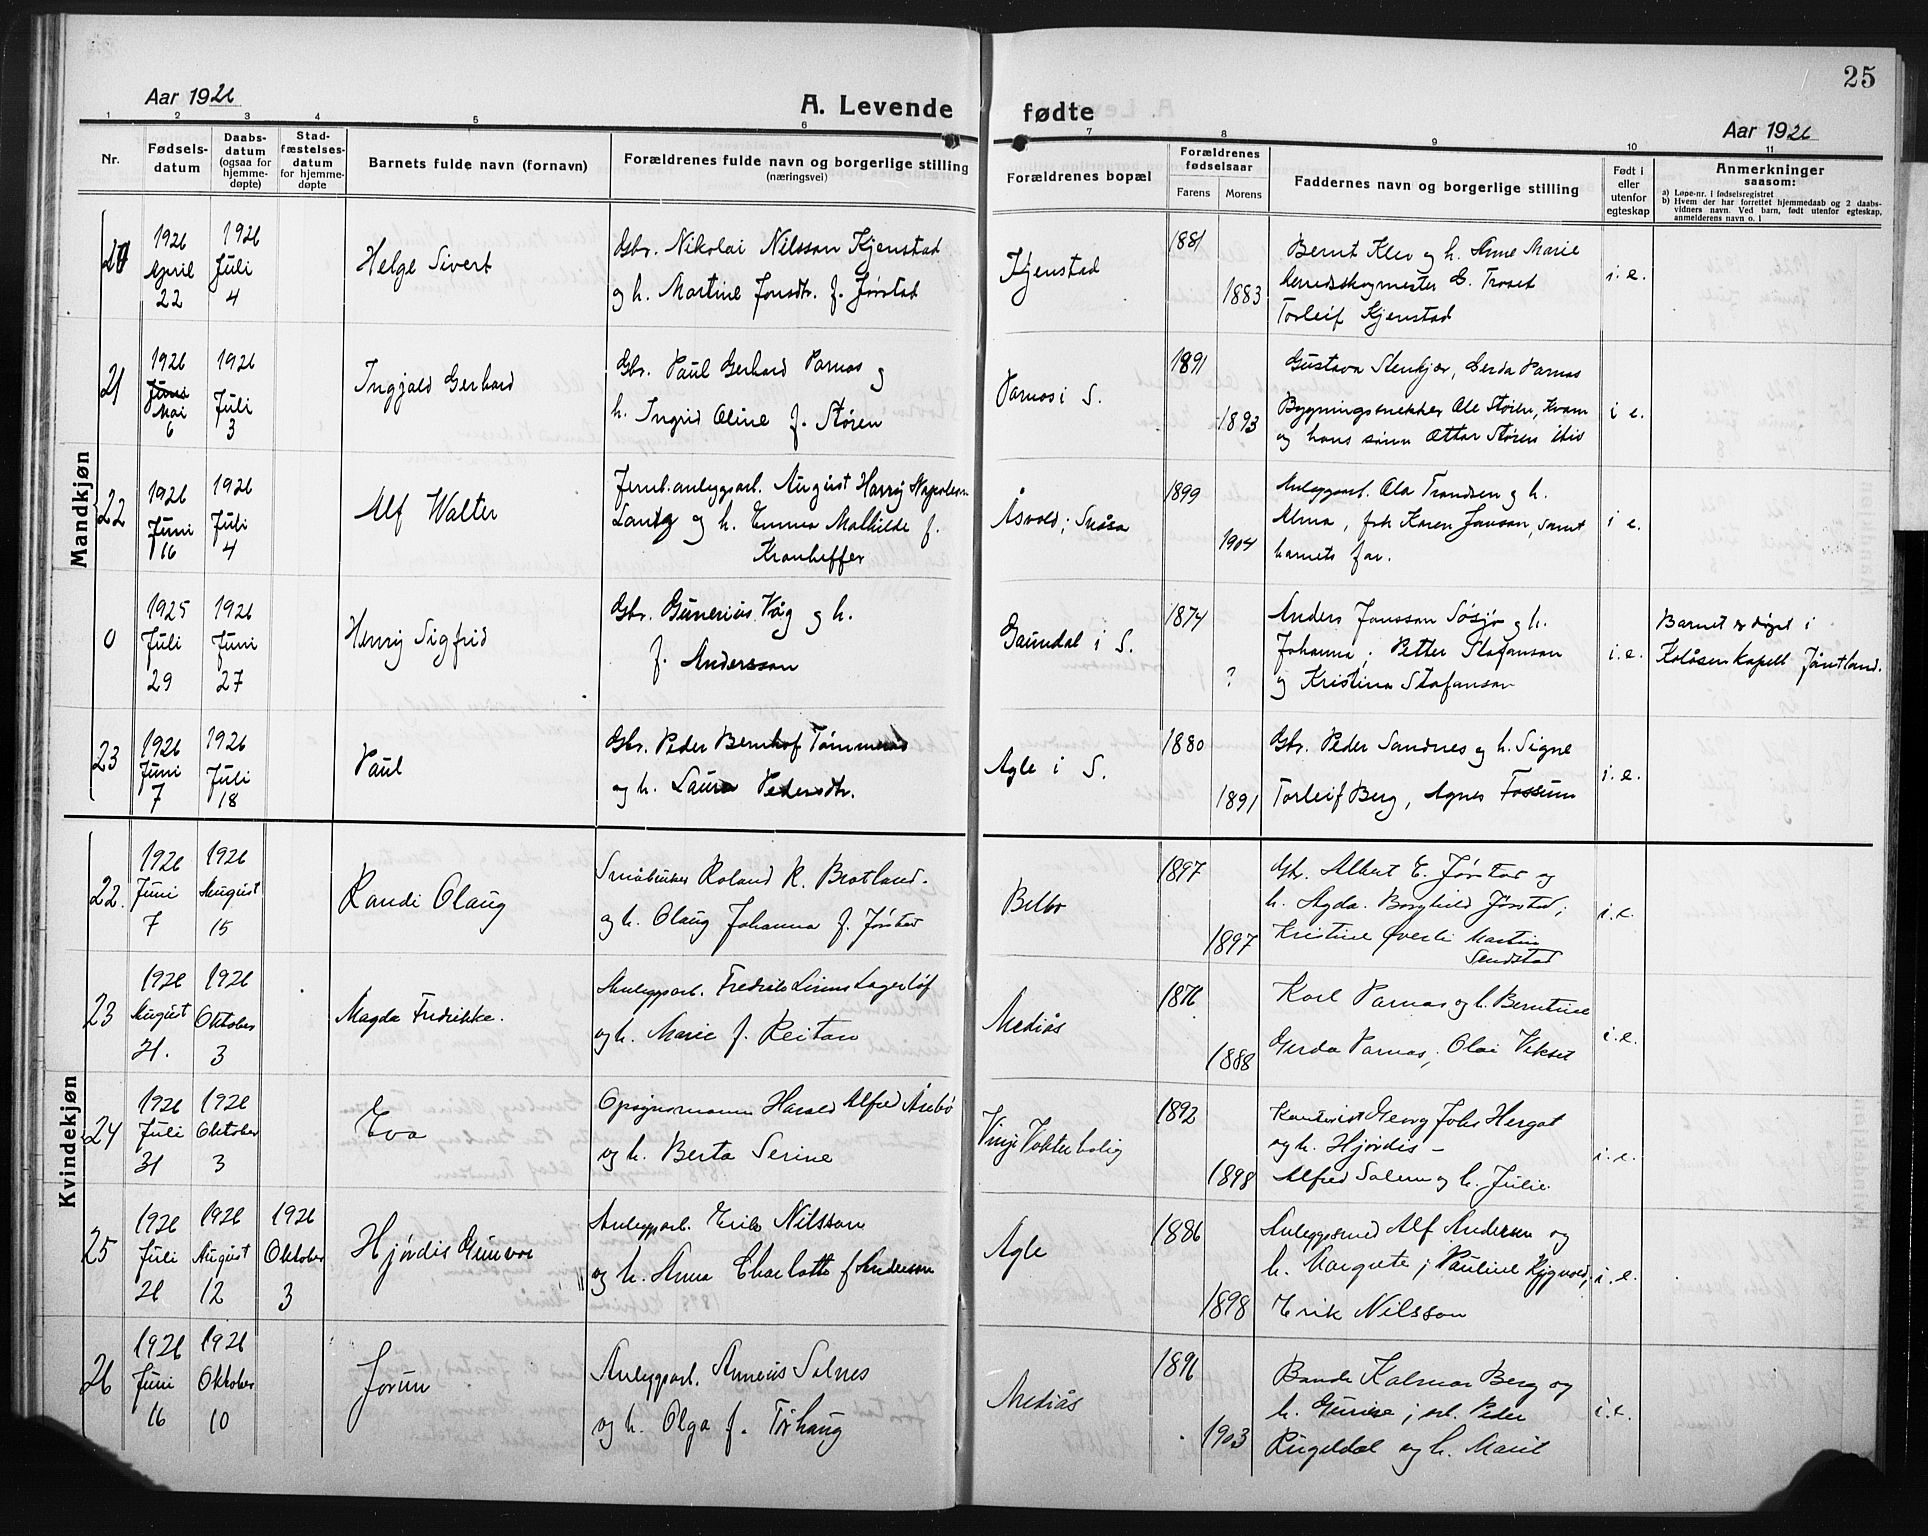 25
Aar 1926
A. Levende fødte
Aar 1926
1 2 3 4 5 6 7 8 9 10 11
Nr.
Fødsels-
datum
Daabs-
datum
(ogsaa for
hjemme-
døpte)
Stad-
fæstelses-
datum
for hjemme-
døpte
Barnets fulde navn (fornavn)
Forældrenes fulde navn og borgerlige stilling
(næringsvei)
Forældrenes bopæl
Forældrenes
fødselsaar
Farens Morens
Faddernes navn og borgerlige stilling
Født i
eller
utenfor
egteskap
Anmerkninger
saasom:
a) Løpe-nr. i fødselsregistret
b) Hvem der har forrettet hjemmedaab og 2 daabs-
vidners navn. Ved barn, født utenfor egteskap,
anmelderens navn o. l
Mandkjøn
20
1926 April 22
1926 Juli 4
Helge Sivert
Gbr. Nikolai Nilssøn Kjenstad
og h. Martine Jonsdtr. f. Jørstad
Kjenstad
1881
1883
Bernt Klev og h. Anne Marie
herredskogmester E. Troset
Torleif Kjenstad
i. e.
21
1926 Juni Mai 6
1926 Juli 3
Ingjald Gerhard
Gbr. Paul Gerhard Parnas og
h. Ingrid Oline f. Støren
Parnas i S.
1891
1893
Gustava Stenkjær, Gerda Parnas
Bygningssnekker Ole Støren, Kvam
og hans sønn Ottar Støren ibid
i e.
22
1926 Juni 16
1926 Juli 4
Alf Walter
Jernb.anlegsarb. August Harry Napoleon
Lantz og h. Emma Mathilde f.
Kronheffer
Åsvold, Snåsa
1899
1904
Anleggsarb. Ola Trondsen og h.
Alma, frk Karen Jonson, samt
barnets far.
i e.
0
1925 Juli 29
1926 Juni 27
Henry Sigfrid
Gbr. Gunerius Våg og h.
f. Andersson
Gaundal i S.
1874
?
Anders Jonsson Søsjø og h.
Johanna, Petter Stafanson
og Kristina Stafanson
i. e.
Barnet er døpt i
Kolåsen kapell Jäntland.
23
1926 Juni 7
1926 Juli 18
Paul
Gbr. Peder Bernhof Tømmerås
og h. Laura Pedersdtr.
Agle i S.
1880
1891
Gbr. Peder Sandnes og h. Signe
Torleif Berg, Agnes Fossum
i. e.
Kvindekjøn
22.
1926 Juni 7
1926 August 15
Randi Olaug
Småbruker Roland K. Brotland.
og h. Olaug Johanna f. Jørstad
Belbo
1897
1897
Gbr. Albert E. Jørstad og
h. Agda. Borghild Jørstad;
Kristine Øverli Martin
Sendstad
i. e.
23
1926 August 21.
1926 Oktober 3
Magda Fredrikke.
Anleggsarb. Fredrik Linus Lagerløf
og h. Marie f. Reitan
Mediås
1876
1888
Karl Parnas og h. Berntine
Gerda Parnas, Olai Vekset
i. e.
24
1926 Juli 31
1926 Oktober 3
Eva
Opsynsmann Harald Alfred Åsebø
og h. Berta Serine
Vinje Vokterbolig
1892
1898
Kontorist Georg Johs Hergot
og h. Hjørdis –
Alfred Solem og h. Julie
i. e.
25
1926 Juli 26
1926 August 12
1926 Oktober 3
Hjørdis Gunvor
Anleggsarb. Erik Nilsson
og h. Anna Charlotte f Anderson
Agle
1886
1898
Anleggssmed Alf Andersen og
h. Margrete; Pauline
Erik Nilsson
i. e.
26
1926 Juni 16
1926 Oktober 10
Jorun
Anleggsarb. Anneus Solnes
og h. Olga f. Tørhaug
Mediås
1896
1903
Bonde Kalmar Berg og
h. Gurine; arb. Peder
Rugeldal og h. Marit
i. e.